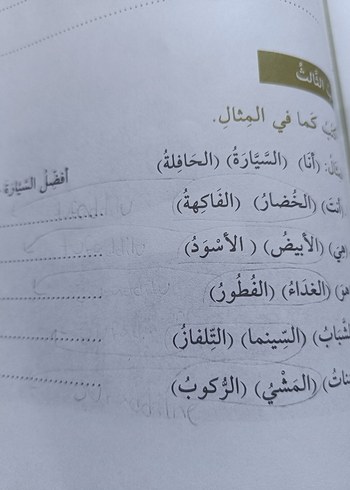 الثَّالثُ
كَما في المِثالِ.
(أَنَا) (السَّيَّارَةُ) (الحَافِلَةُ)
أُفَضِّلُ السَّيَّارَةَ
(أَنْتَ) (الخُضارُ) (الفَاكِهةُ)
(هِيَ) (الأَبيضُ) (الأَسْوَدُ)
(هُوَ) (الغدَاءُ) (الفُطُورُ)
(السِّينما) (التِّلفازُ)
(المَشْيُ) (الرُّكوبُ)